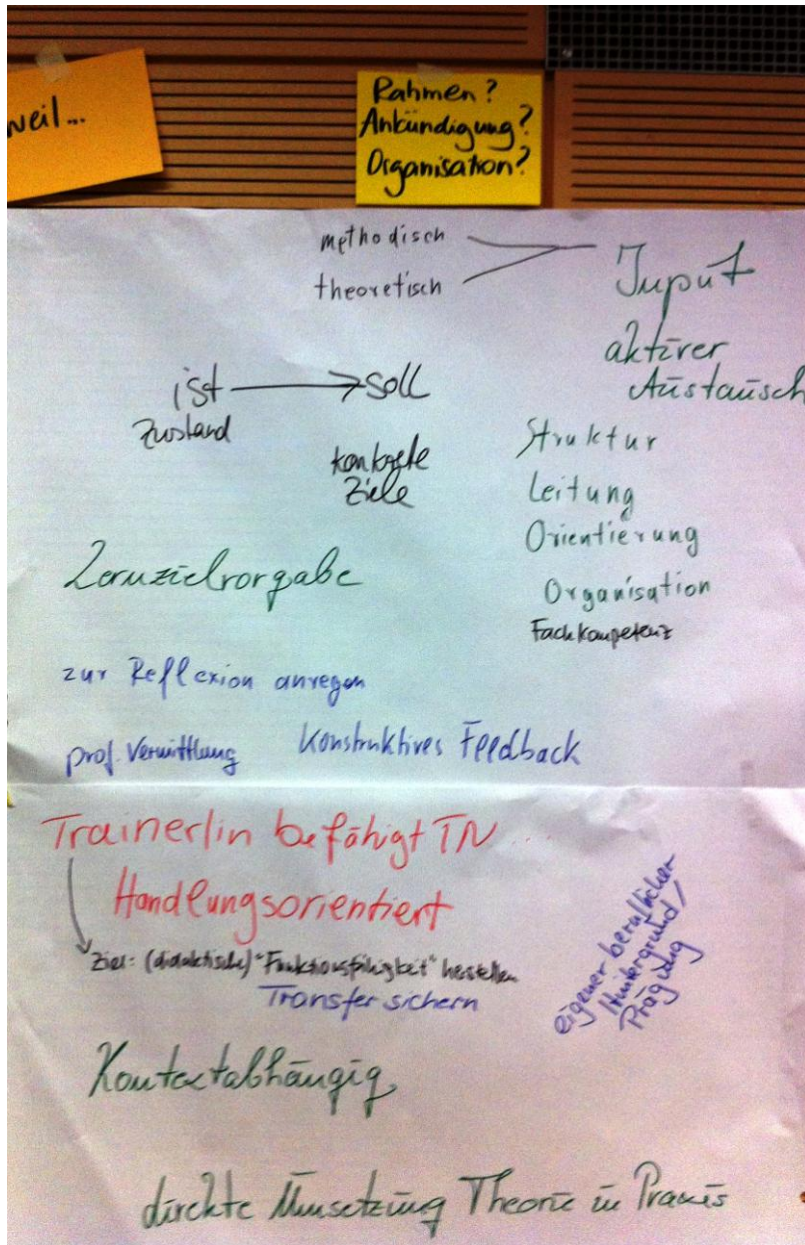 weil...
Rahmen?
Ankündigung?
Organisation?
methodisch
theoretisch
Input
aktiver
Austausch
ist → soll
Zustand
konkrete
Ziele
Struktur
Leitung
Orientierung
Organisation
Fachkompetenz
Lernzielvorgabe
zur Reflexion anregen
prof. Vermittlung
Konstruktives Feedback
Trainer/in befähigt TN...
Handlungsorientiert
Ziel: (didaktische) "Funktionsfähigkeit" herstellen
Transfer sichern
eigener beruflicher
Hintergrund/
Prägung
Kontextabhängig
direkte Umsetzung Theorie in Praxis